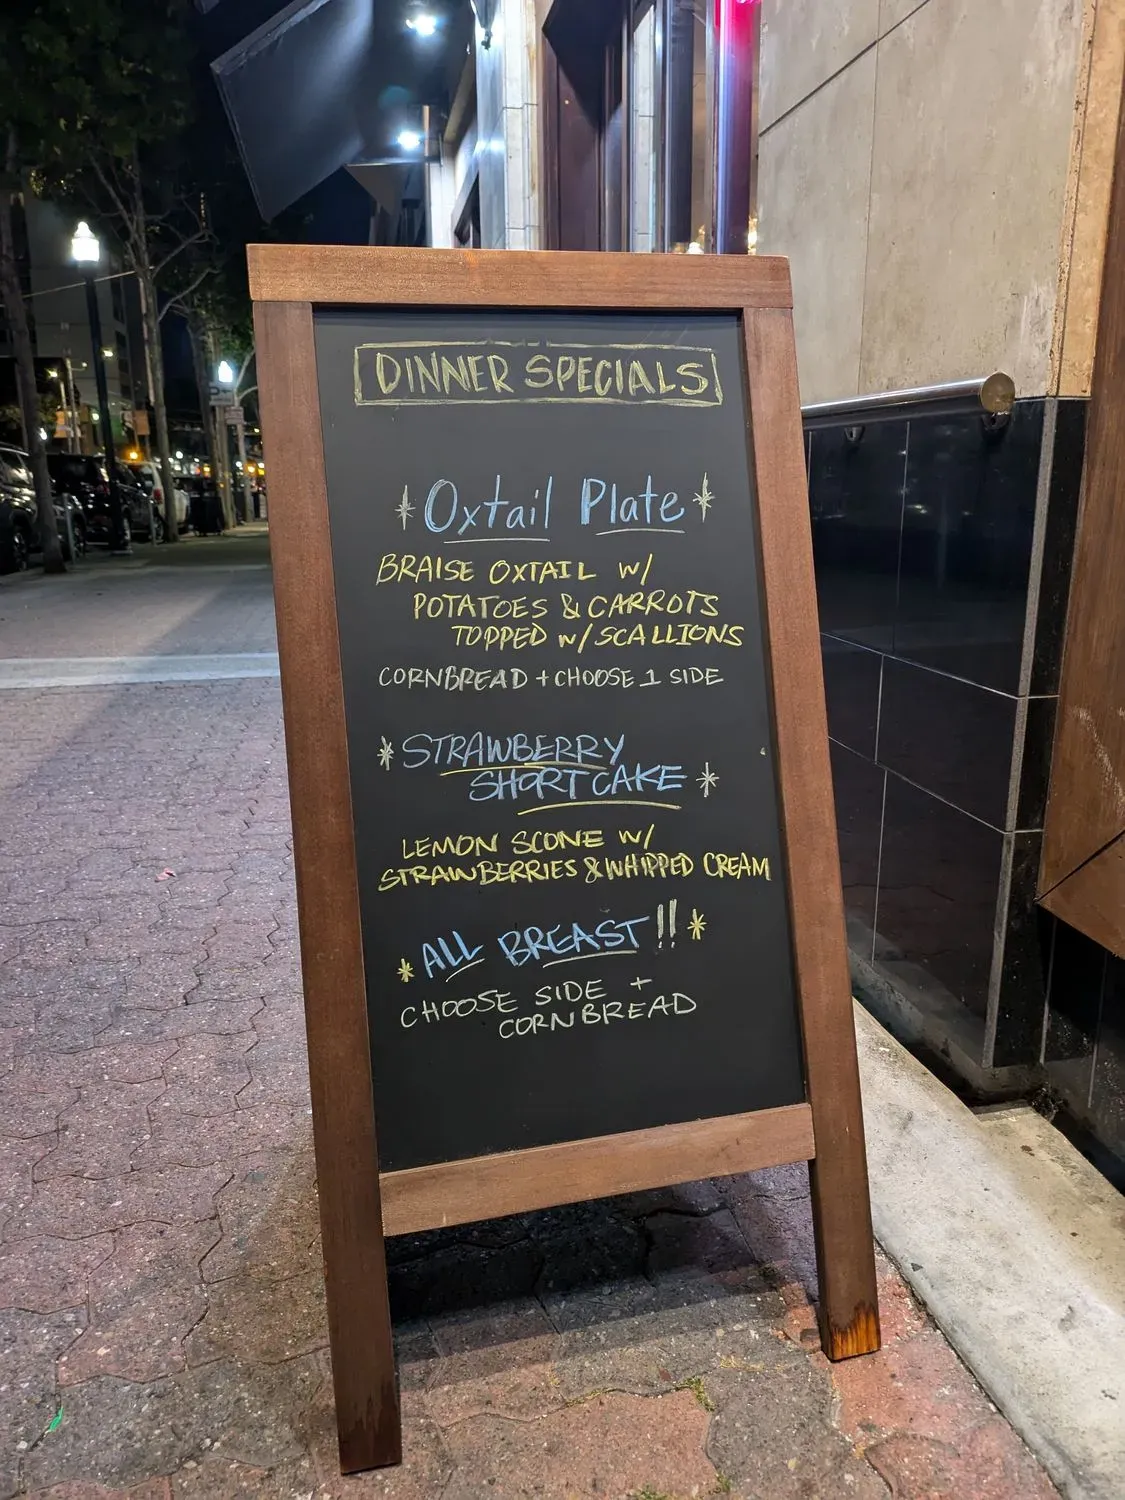 DINNER SPECIALS
Oxtail Plate
BRAISE OXTAIL W/
POTATOES & CARROTS
TOPPED W/ SCALLIONS
CORNBREAD + CHOOSE 1 SIDE
STRAWBERRY
SHORTCAKE
LEMON SCONE W/
STRAWBERRIES & WHIPPED CREAM
ALL BREAST!!
CHOOSE SIDE +
CORNBREAD